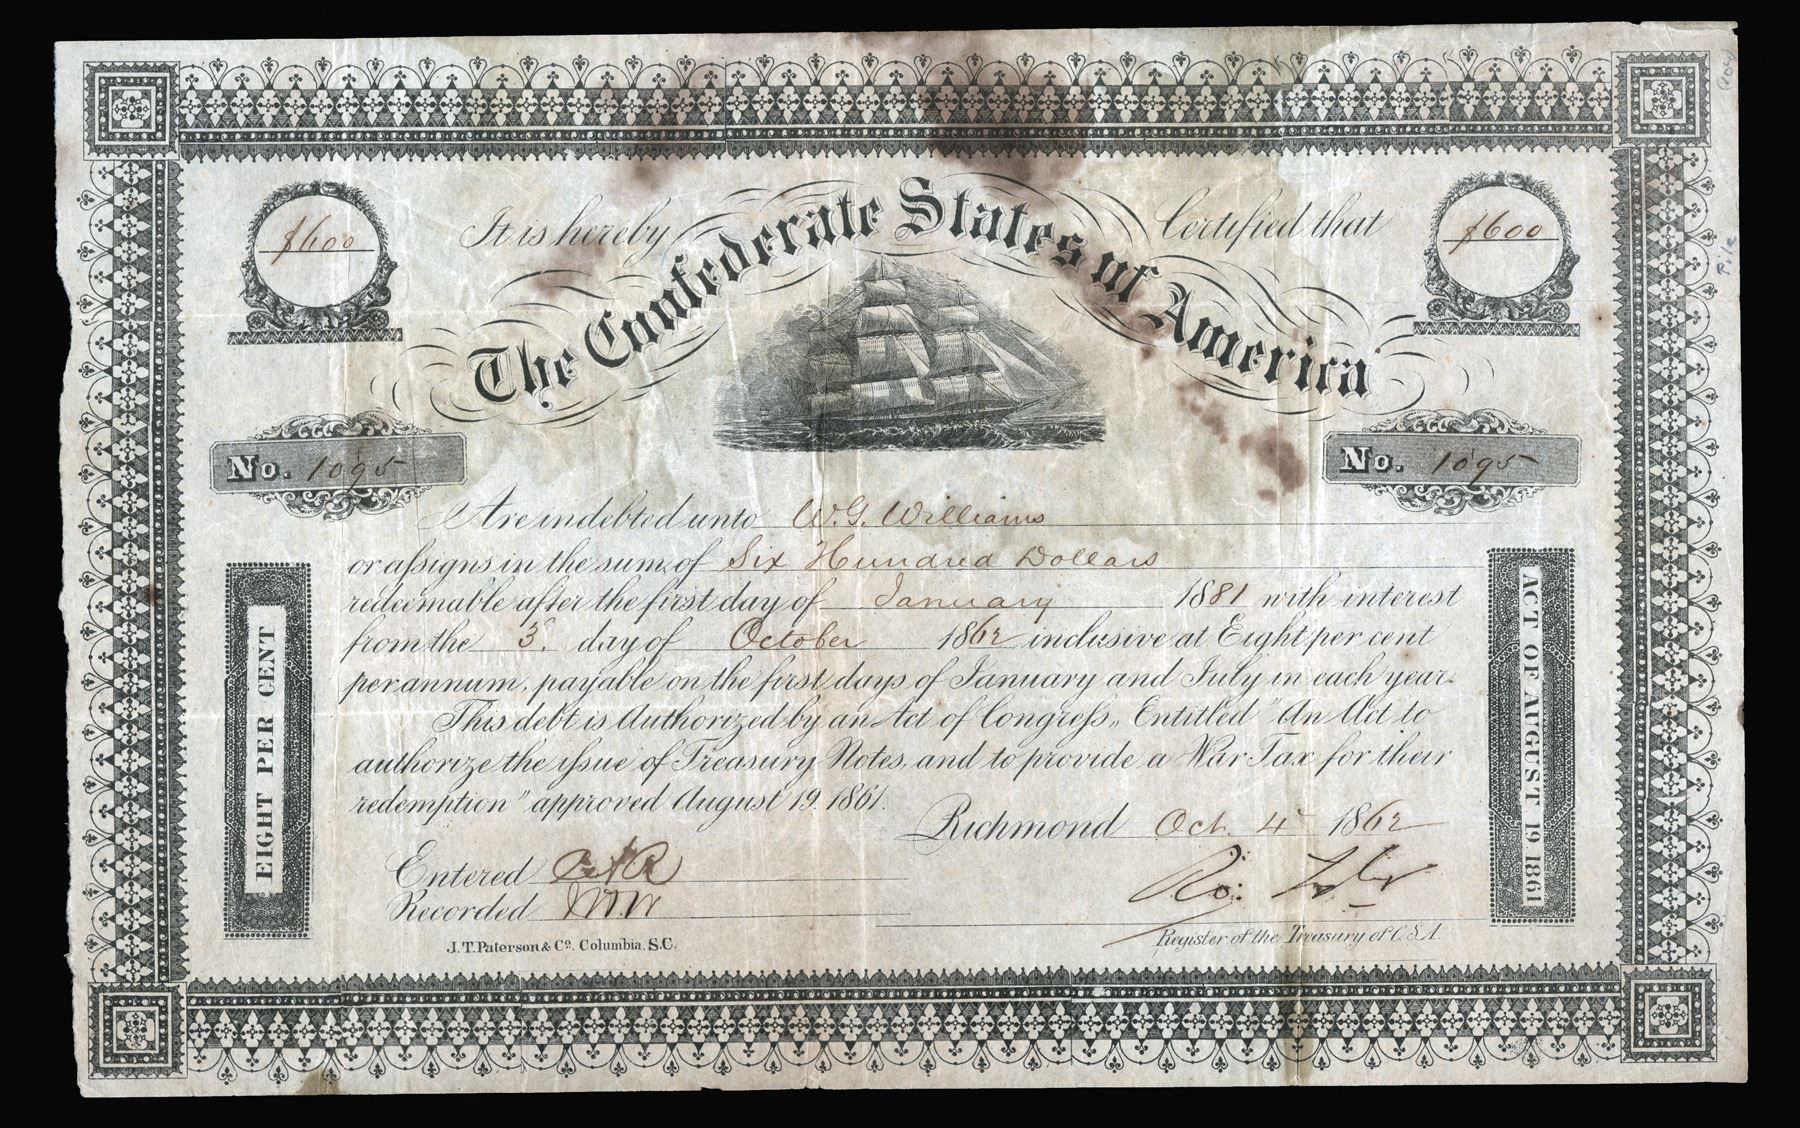 It is hereby Certified that
The Confederate States of America
$600
$600
No. 1095
No. 1095
Are indebted unto W. G. Williams
or assigns in the sum of Six Hundred Dollars
redeemable after the first day of January 1881 with interest
from the 3d day of October 1862 inclusive at Eight per cent
per annum, payable on the first days of January and July in each year.
This debt is Authorized by an Act of Congress, Entitled "An Act to
authorize the issue of Treasury Notes, and to provide a War Tax for their
redemption" approved August 19. 1861.
EIGHT PER CENT
ACT OF AUGUST 19 1861
Richmond Oct. 4th 1862
Entered
Recorded
Ro: Tyler
Register of the Treasury of C.S.A.
J. T. Paterson & Co. Columbia, S.C.